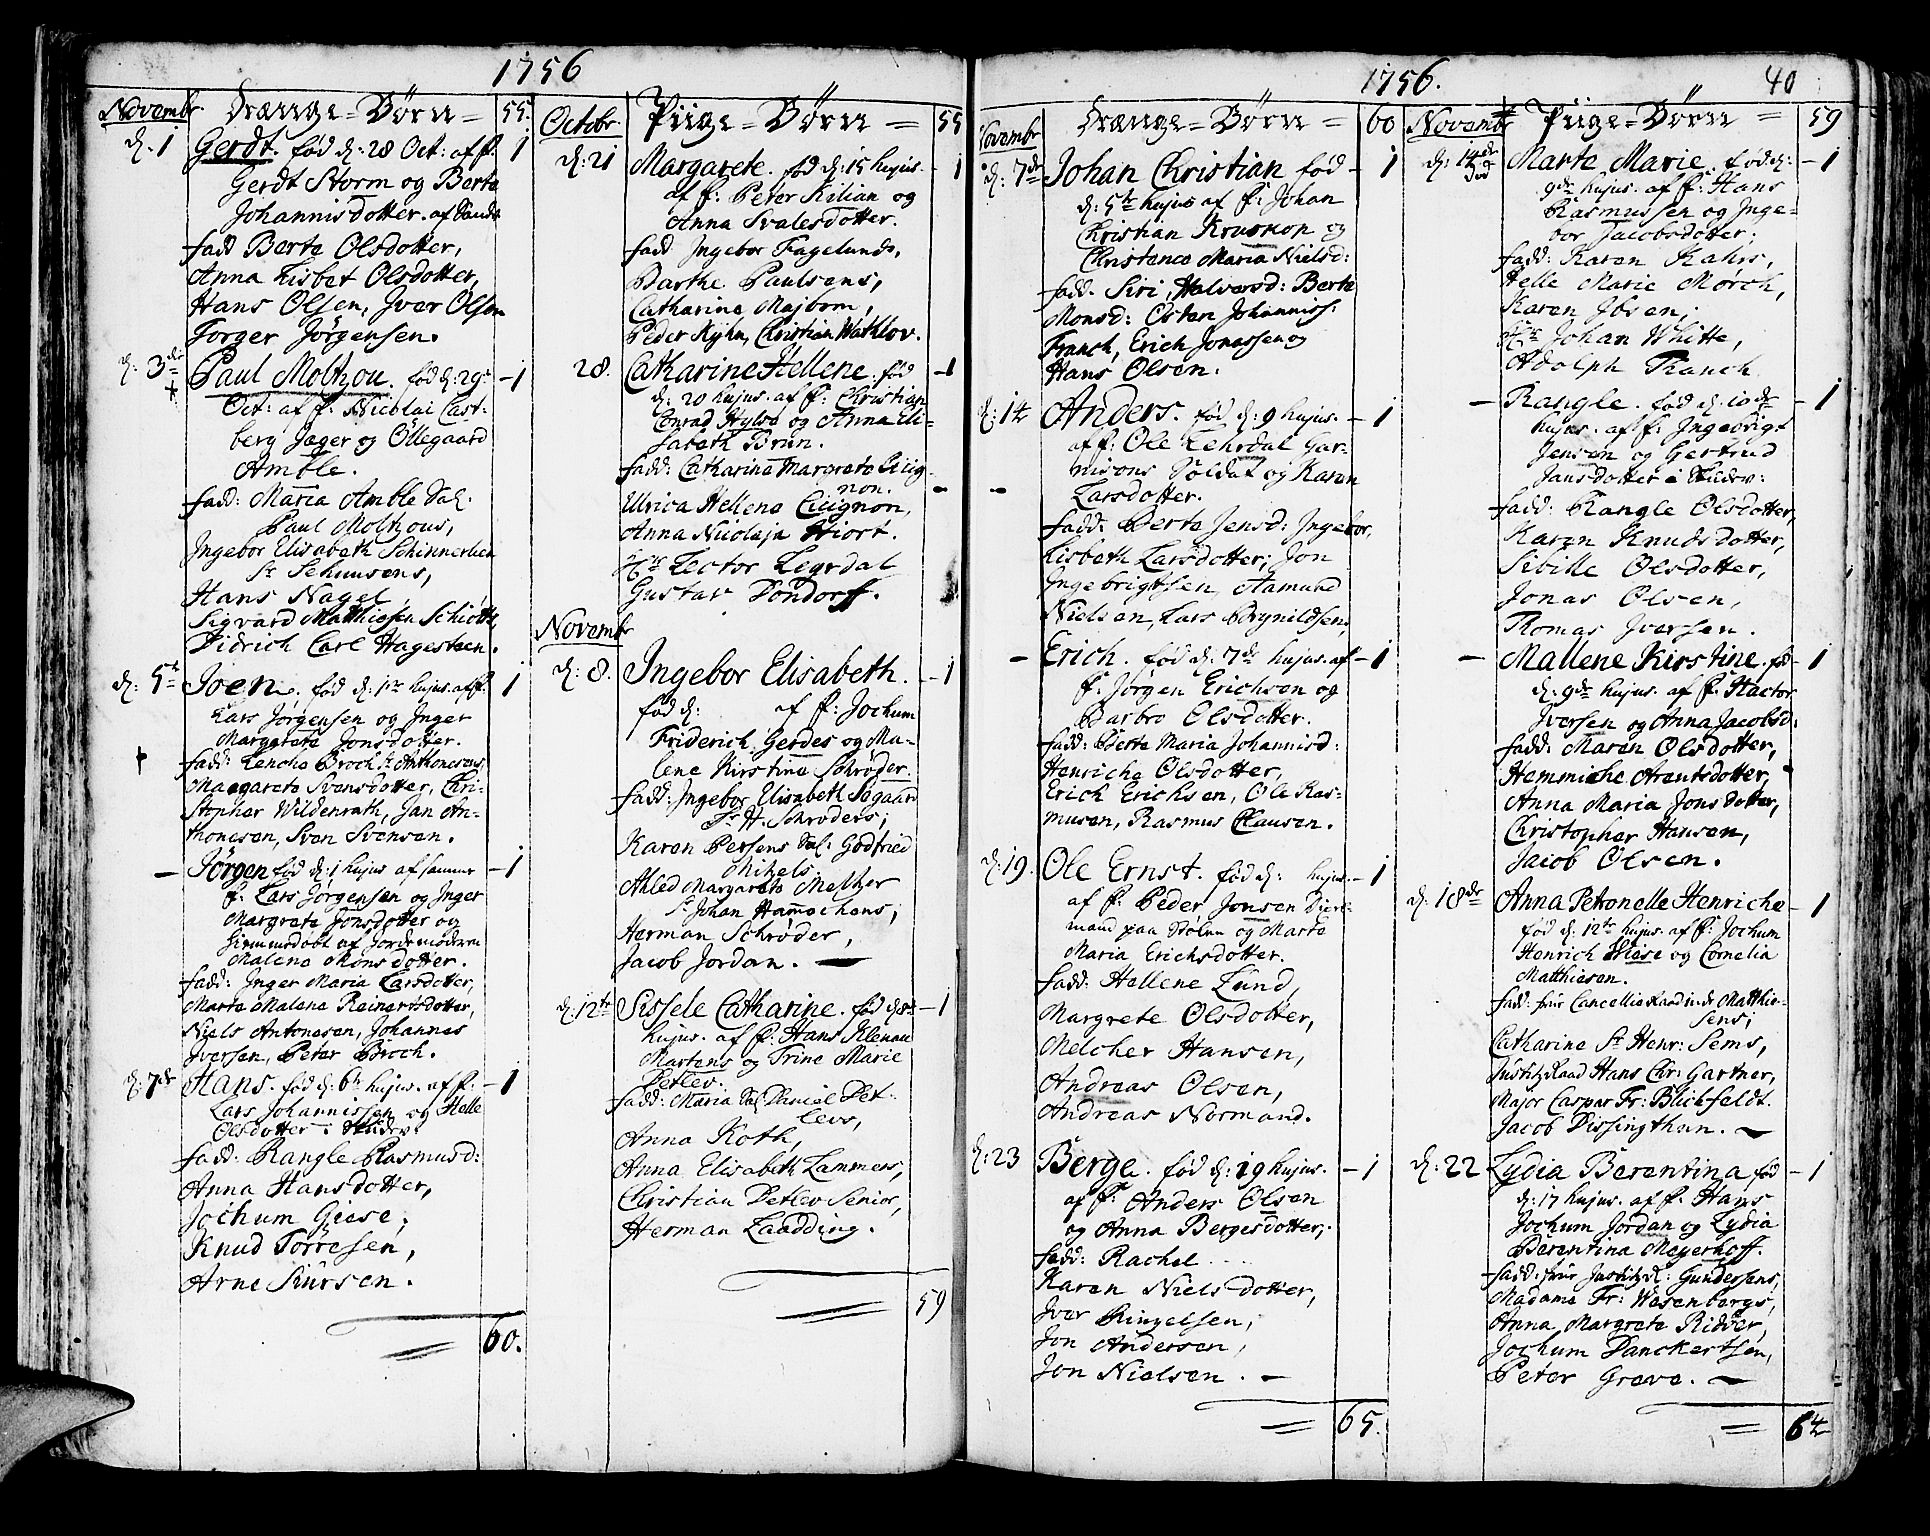 1756
Novembr.
Drænge-Børn
55.
d. 1
Gerdt. fød d: 28 Oct: af f: 1
Gerdt Storm og Berte
Johannisdotter. af Sands
fadd Berte Olsdotter,
Anna Lisbet Olsdotter,
Hans Olsen, Iver Olsen
Torger Jörgensen.
d. 3die
Paul Moltzou. fød d: 29 - 1
Oct: af f: Nicolai Cast-
berg Jæger og Öllegaard
Amble.
fadd: Maria Amble Sal.
Paul Moltzous,
Ingebor Elisabeth
Hans Nagel,
Sigvard Matthiesen Schiötte,
Didrich Carl Hagesteen.
d. 5te
Joen. fød d: 1te hujus. af f: 1
Lars Jörgensen og Inger
Margarete Jonsdotter.
fadd: Lenche Broch Sr Anthonesens,
Margarete Svensdotter, Chri-
stopher Wildenrath, Jan An-
thonesen, Sven Svensen.
- Jörgen fød d: 1 hujus af samme - 1
f: Lars Jörgensen og Inger
Margrete Jonsdotter og
hiemmedøbt af Jordemoderen
Malena Monsdotter.
fadd: Inger Maria Larsdotter,
Marte Malena Reinertsdotter,
Niels Antonesen, Johannes
Iversen, Peter Broch.
d: 7de
Hans. fød d: 6te hujus. af f: - 1
Lars Johannissen og Helle
Olsdotter i Skudev:
fadd: Rangle Rasmusd:
Anna Hansdotter,
Jochum Giese,
Knud Torresen,
Arne Siursen.
60.
Octobr.
Piige-Børn =
55
d: 21
Margarete. fød d: 15 hujus. - 1
af f: Peter Kilian og
Anna Svalesdotter.
fadd Ingebor Fagelunds,
Barthe Paulsens,
Catharine Majbom,
Peder Kyhn, Christian Wathlov.
28.
Catharine Hellene. fød - 1
d: 20 hujus. af f: Christian
Conrad Hylso og Anna Eli-
sabeth Brun.
fadd: Catharina Margreta Cicig-
non.
Ulrica Hellena Cicignon,
Anna Nicolaja Hiort.
Hrr Lector Legrdal
Gustav Dondorff.
Novembr
d: 8.
Ingebor Elisabeth. - 1
fød d: af f: Jochum
Friderich Gerdes og Ma-
lene Kirstine Schrøder.
fadd: Ingebor Elisabeth Søgaard
Sr H. Schrøders;
Karen Persens Sal. Godfried
Nikels
Ahled Margareta Meltzer
Sr Johan Hammechens;
Herman Schrøder,
Jacob Jordan.
d: 12te
Sissele Catharine. fød d: 8de - 1
hujus. af f: Hans Klenau
Martens og Trine Marie
Detlev.
fadd: Maria Sal Daniel Det-
levs,
Anna Koth,
Anna Elisabeth Lammers,
Christian Detlev Senior,
Herman Laadding.
59
1756.
40
Novembr
Drænge-Børn =
60
d: 7de
Johan Christian fød - 1
d: 5te hujus af f: Johan
Christian Kruskop og
Christence Maria Nielsd:
fadd. Siri Halversd: Berte
Monsd: Osten Johanniss:
Franck, Erich Jonassen og
Hans Olsen.
d: 14
Anders. fød d: 9 hujus. - 1
af f: Ole Lehrdal Gar-
nisons Soldat og Karen
Larsdotter.
fadd: Berte Jensd: Ingebor,
Lisbeth Larsdotter; Jon
Ingebrigtsen, Aamund
Nielsen, Lars Brynildsen,
- Erich. fød d: 7de hujus. af - 1
f: Jörgen Erichsen og
Barbro Olsdotter.
fadd: Berte Maria Johannisd:
Henriche Olsdotter,
Erich Erichsen, Ole Ras-
musen, Rasmus Clausen.
d: 19.
Ole Ernst. fød d: hujus. - 1
af f: Peder Jonsen Dier-
mand paa Stølen og Marte
Maria Erichsdotter.
fadd: Hellene Lund,
Margrete Olsdotter,
Melcher Hansen,
Andreas Olsen,
Andreas Normand.
d: 23
Berge. fød d: 19 hujus. - 1
af f: Anders Olsen
og Anna Bergesdotter;
fadd: Rachel ....
Karen Nielsdotter,
Iver Ringelsen,
Jon Andersen,
Jon Nielsen.
65.
Novembr
Piige-Børn =
59
d: 14de
Marte Marie. fød d: - 1
9de hujus. af f: Hans
Rasmussen og Inge-
bor Jacobsdotter;
fadd: Karen Kahrs,
Helle Marie Mørch,
Karen Ibsen;
Hrr Johan Whitte,
Adolph Franck
- Rangle. fød d: 10de - 1
hujus. af f: Ingebrigt
Jensen og Gertrud
Jansdotter i Skudev:
fadd: Rangle Olsdotter,
Karen Knudsdotter,
Sibille Olsdotter,
Jonas Olsen,
Thomas Iversen.
- Mallene Kirstine. fød - 1
d: 9de hujus. af f: Hactor
Iversen og Anna Jacobsd:
fadd: Maren Olsdotter,
Hemmiche Arentsdotter,
Anna Maria Jonsdotter,
Christopher Hansen,
Jacob Olsen.
d: 18de
Anna Petronelle Henriche - 1
fød d: 12te hujus. af f: Jochum
Henrich Wiese og Cornelia
Matthiesen.
fadd: frue Cancellieraadinde Matthie-
sens;
Catharine Sr Henr: Sems,
Justitzraad Hans Chr: Gartner,
Major Caspar Fr: Blichfeldt.
Jacob Dissingthun.
d: 22
Lydia Berentina fød - 1
d: 17 hujus. af f: Hans
Jochum Jordan og Lydia
Berentina Meyerhoff.
fadd: frue Justitzr: Gundersens,
Madame Fr: Wesenbergs,
Anna Margrete Ridder,
Jochum Danckertsen,
Peter Greve.
64